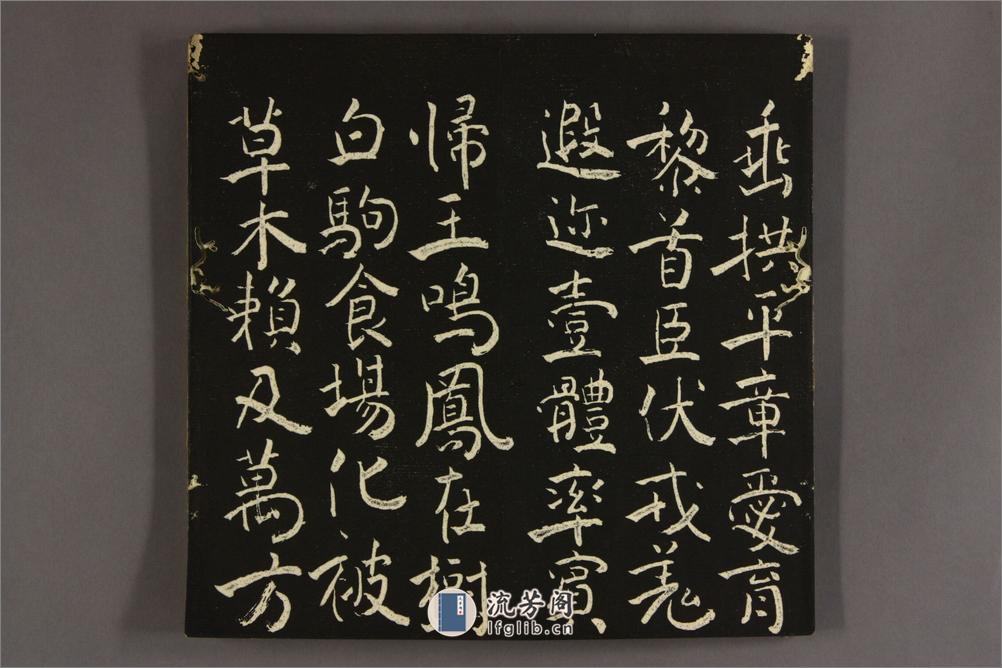 垂拱平章愛育
黎首臣伏戎羌
遐迩壹體率賓
歸王鳴鳳在樹
白駒食場化被
草木賴及萬方
流芳阁
lfglib.cn